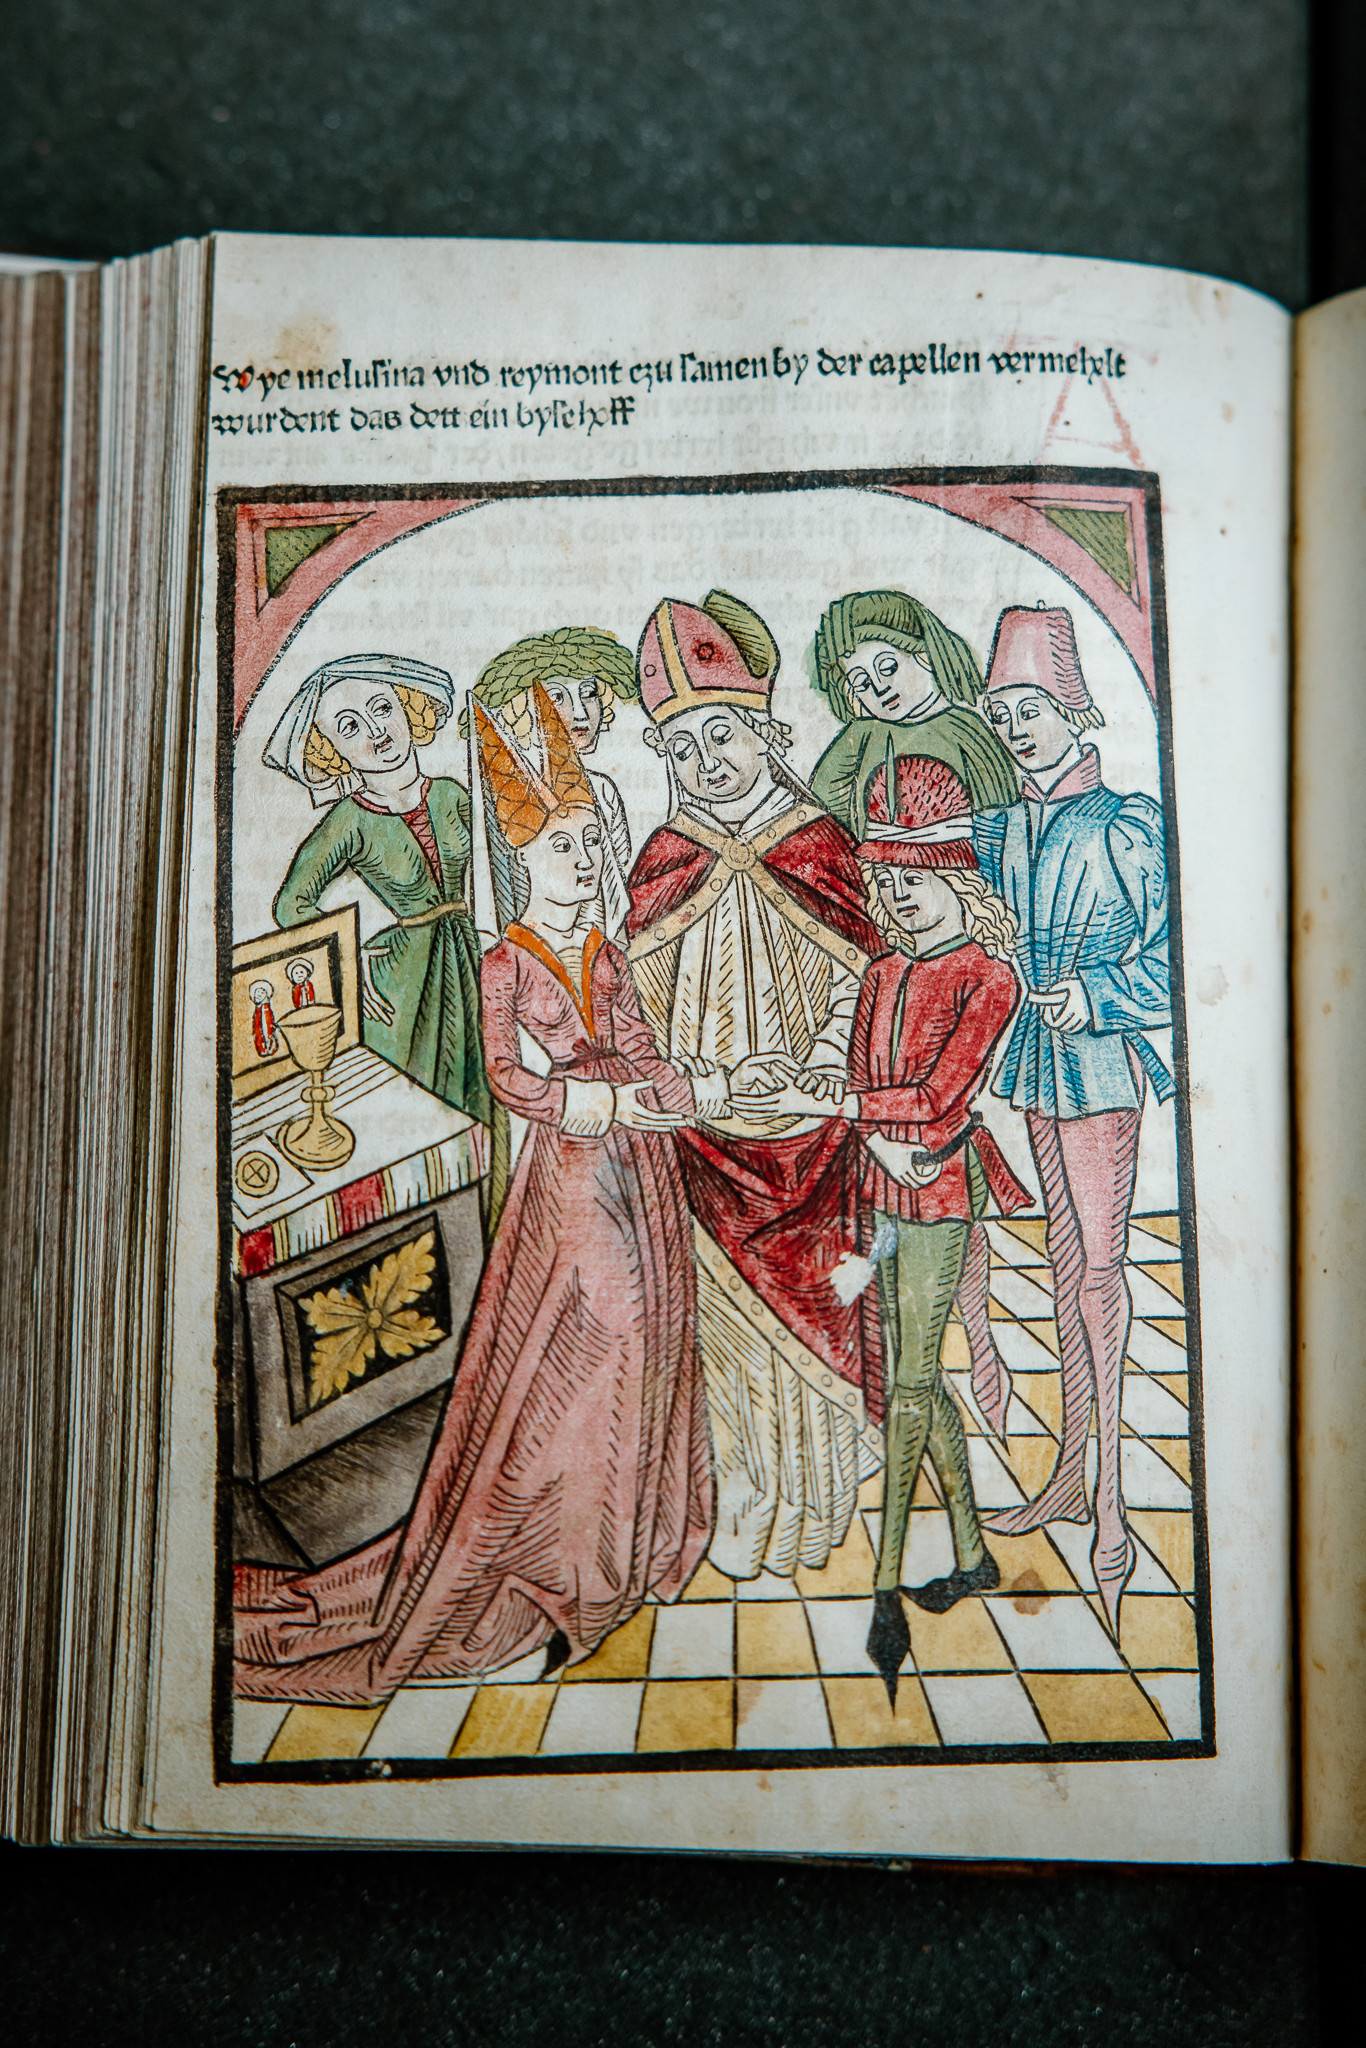 Wye melusina vnd reymont czu samen by der capellen vermehelt
wurdent das dett ein byschoff